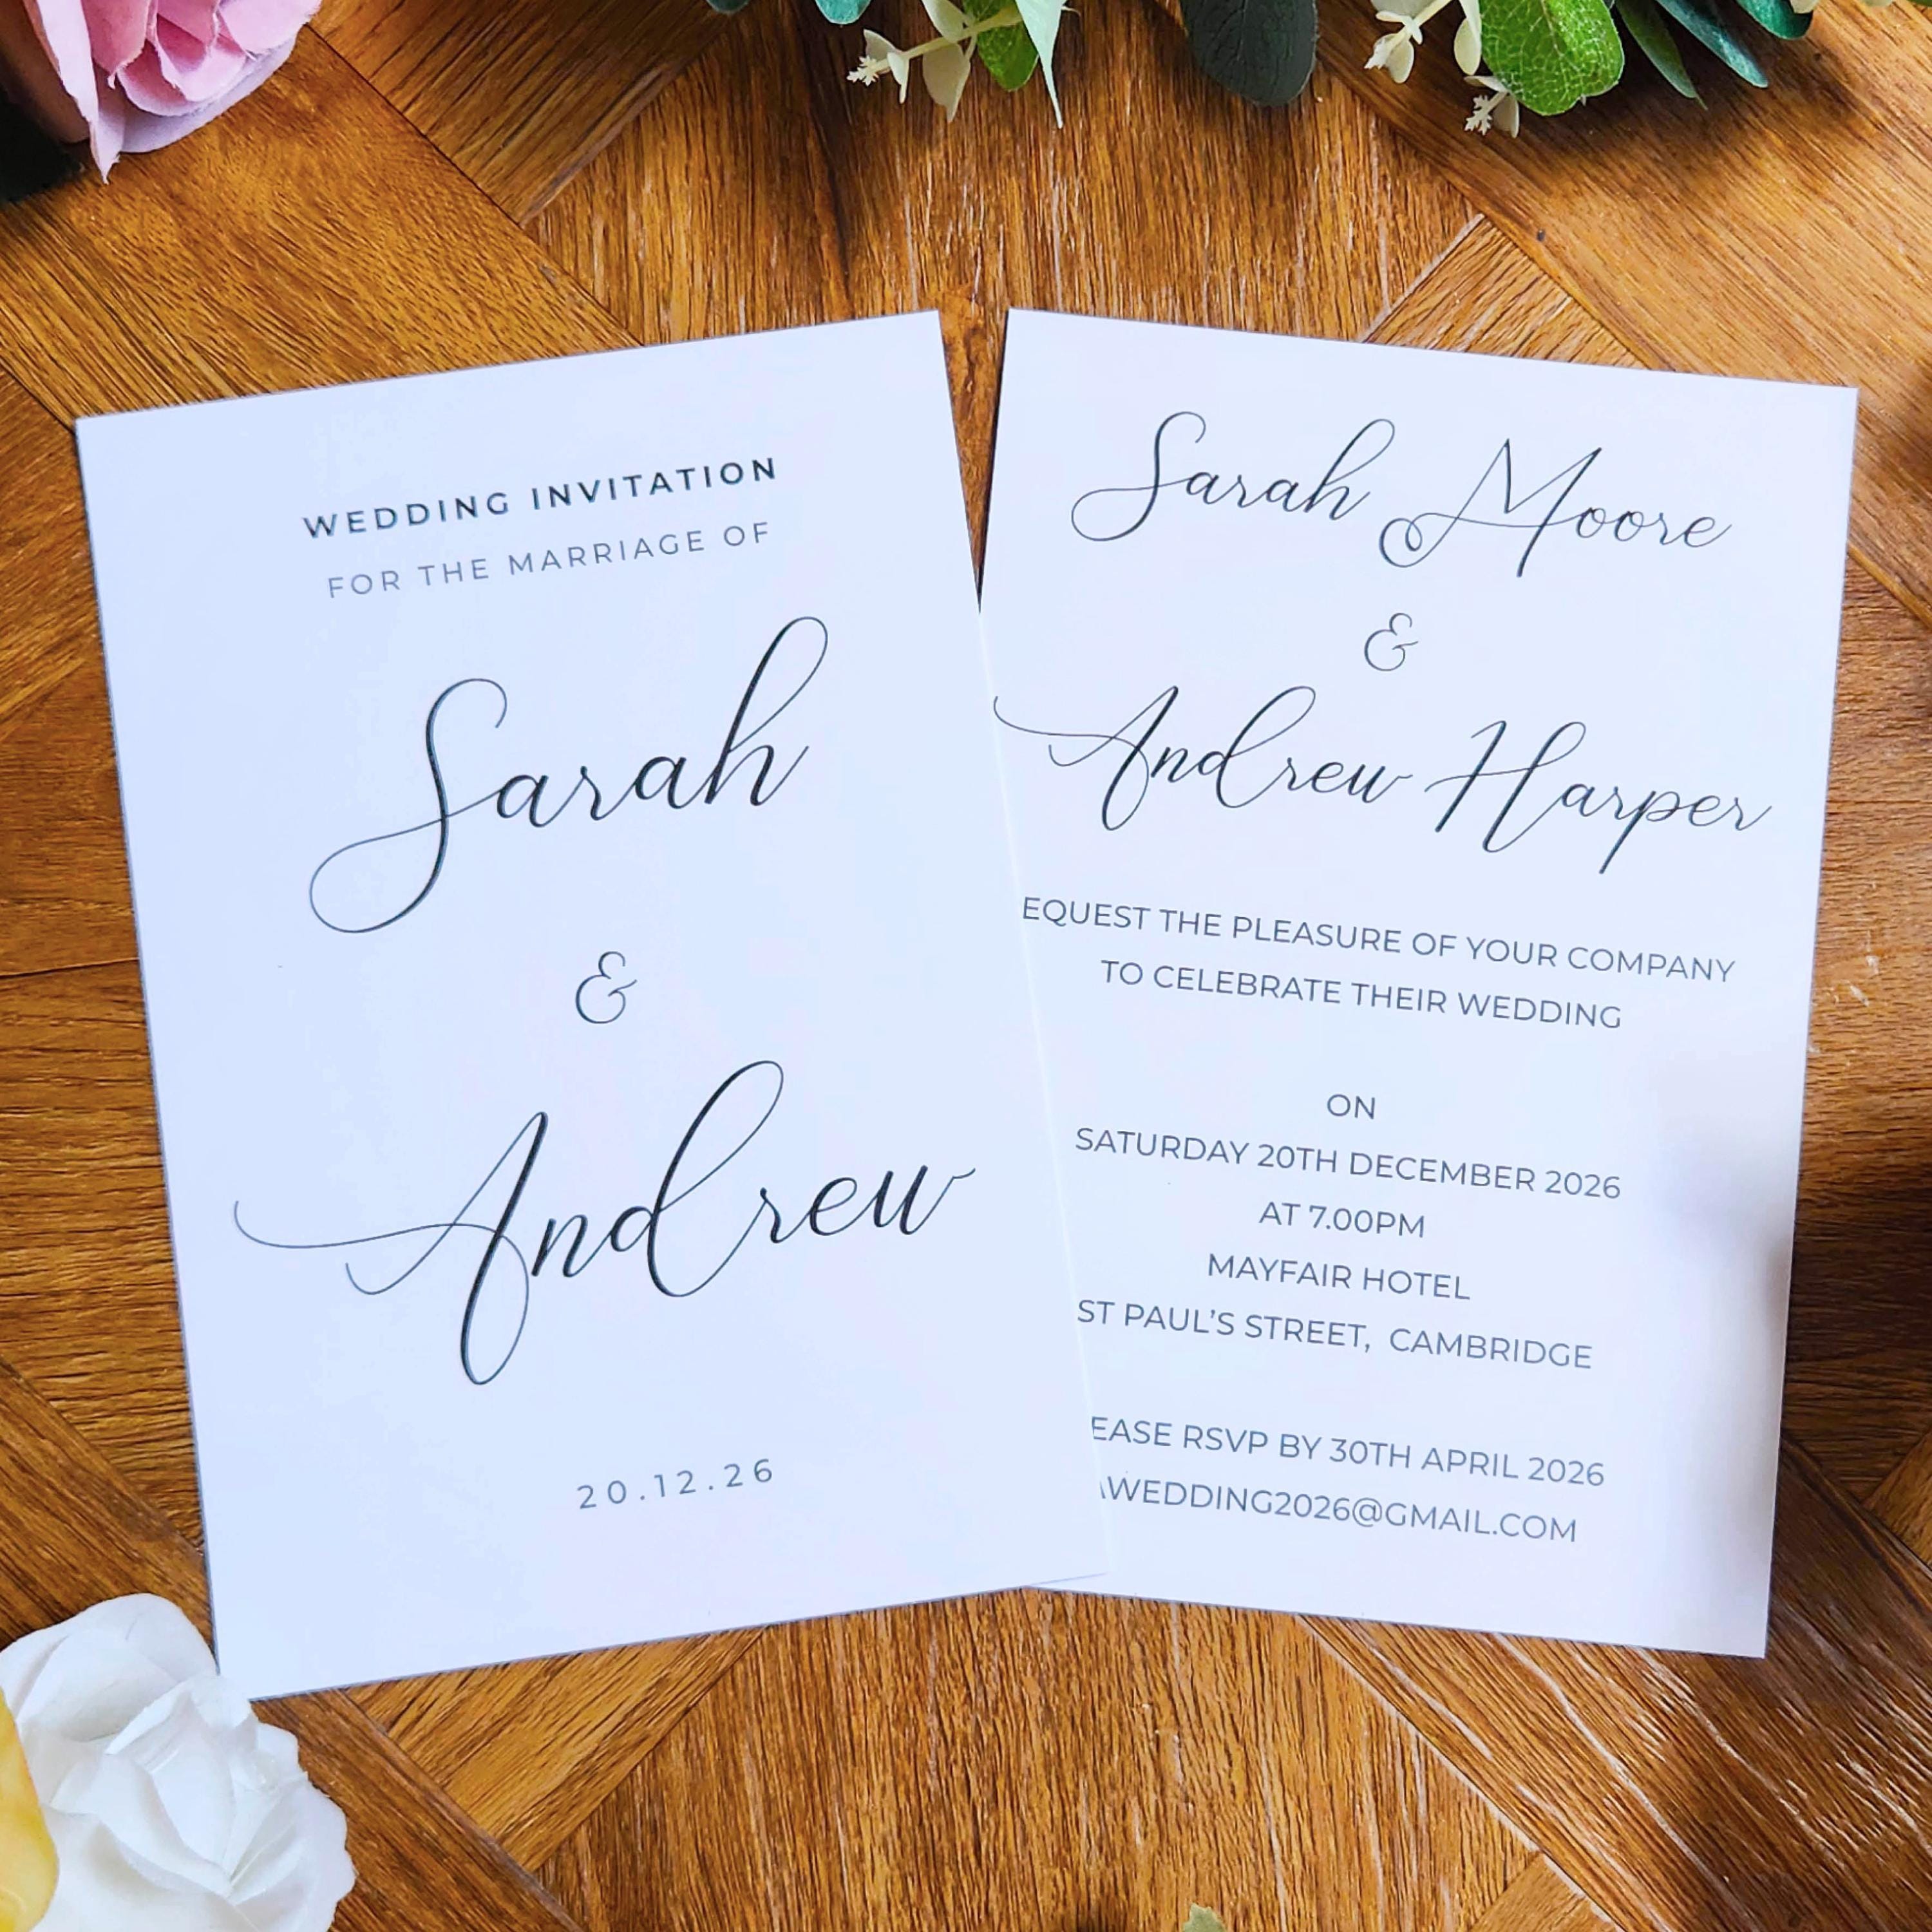 WEDDING INVITATION
FOR THE MARRIAGE OF
Sarah
&
Andrew
20.12.26
Sarah Moore
&
Andrew Harper
EQUEST THE PLEASURE OF YOUR COMPANY
TO CELEBRATE THEIR WEDDING
ON
SATURDAY 20TH DECEMBER 2026
AT 7.00PM
MAYFAIR HOTEL
ST PAUL'S STREET, CAMBRIDGE
EASE RSVP BY 30TH APRIL 2026
AWEDDING2026@GMAIL.COM